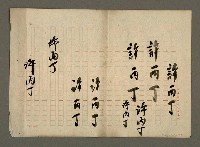 許丙丁
許丙丁
許丙丁
許丙丁
許丙丁
許丙丁
許丙丁
許丙丁